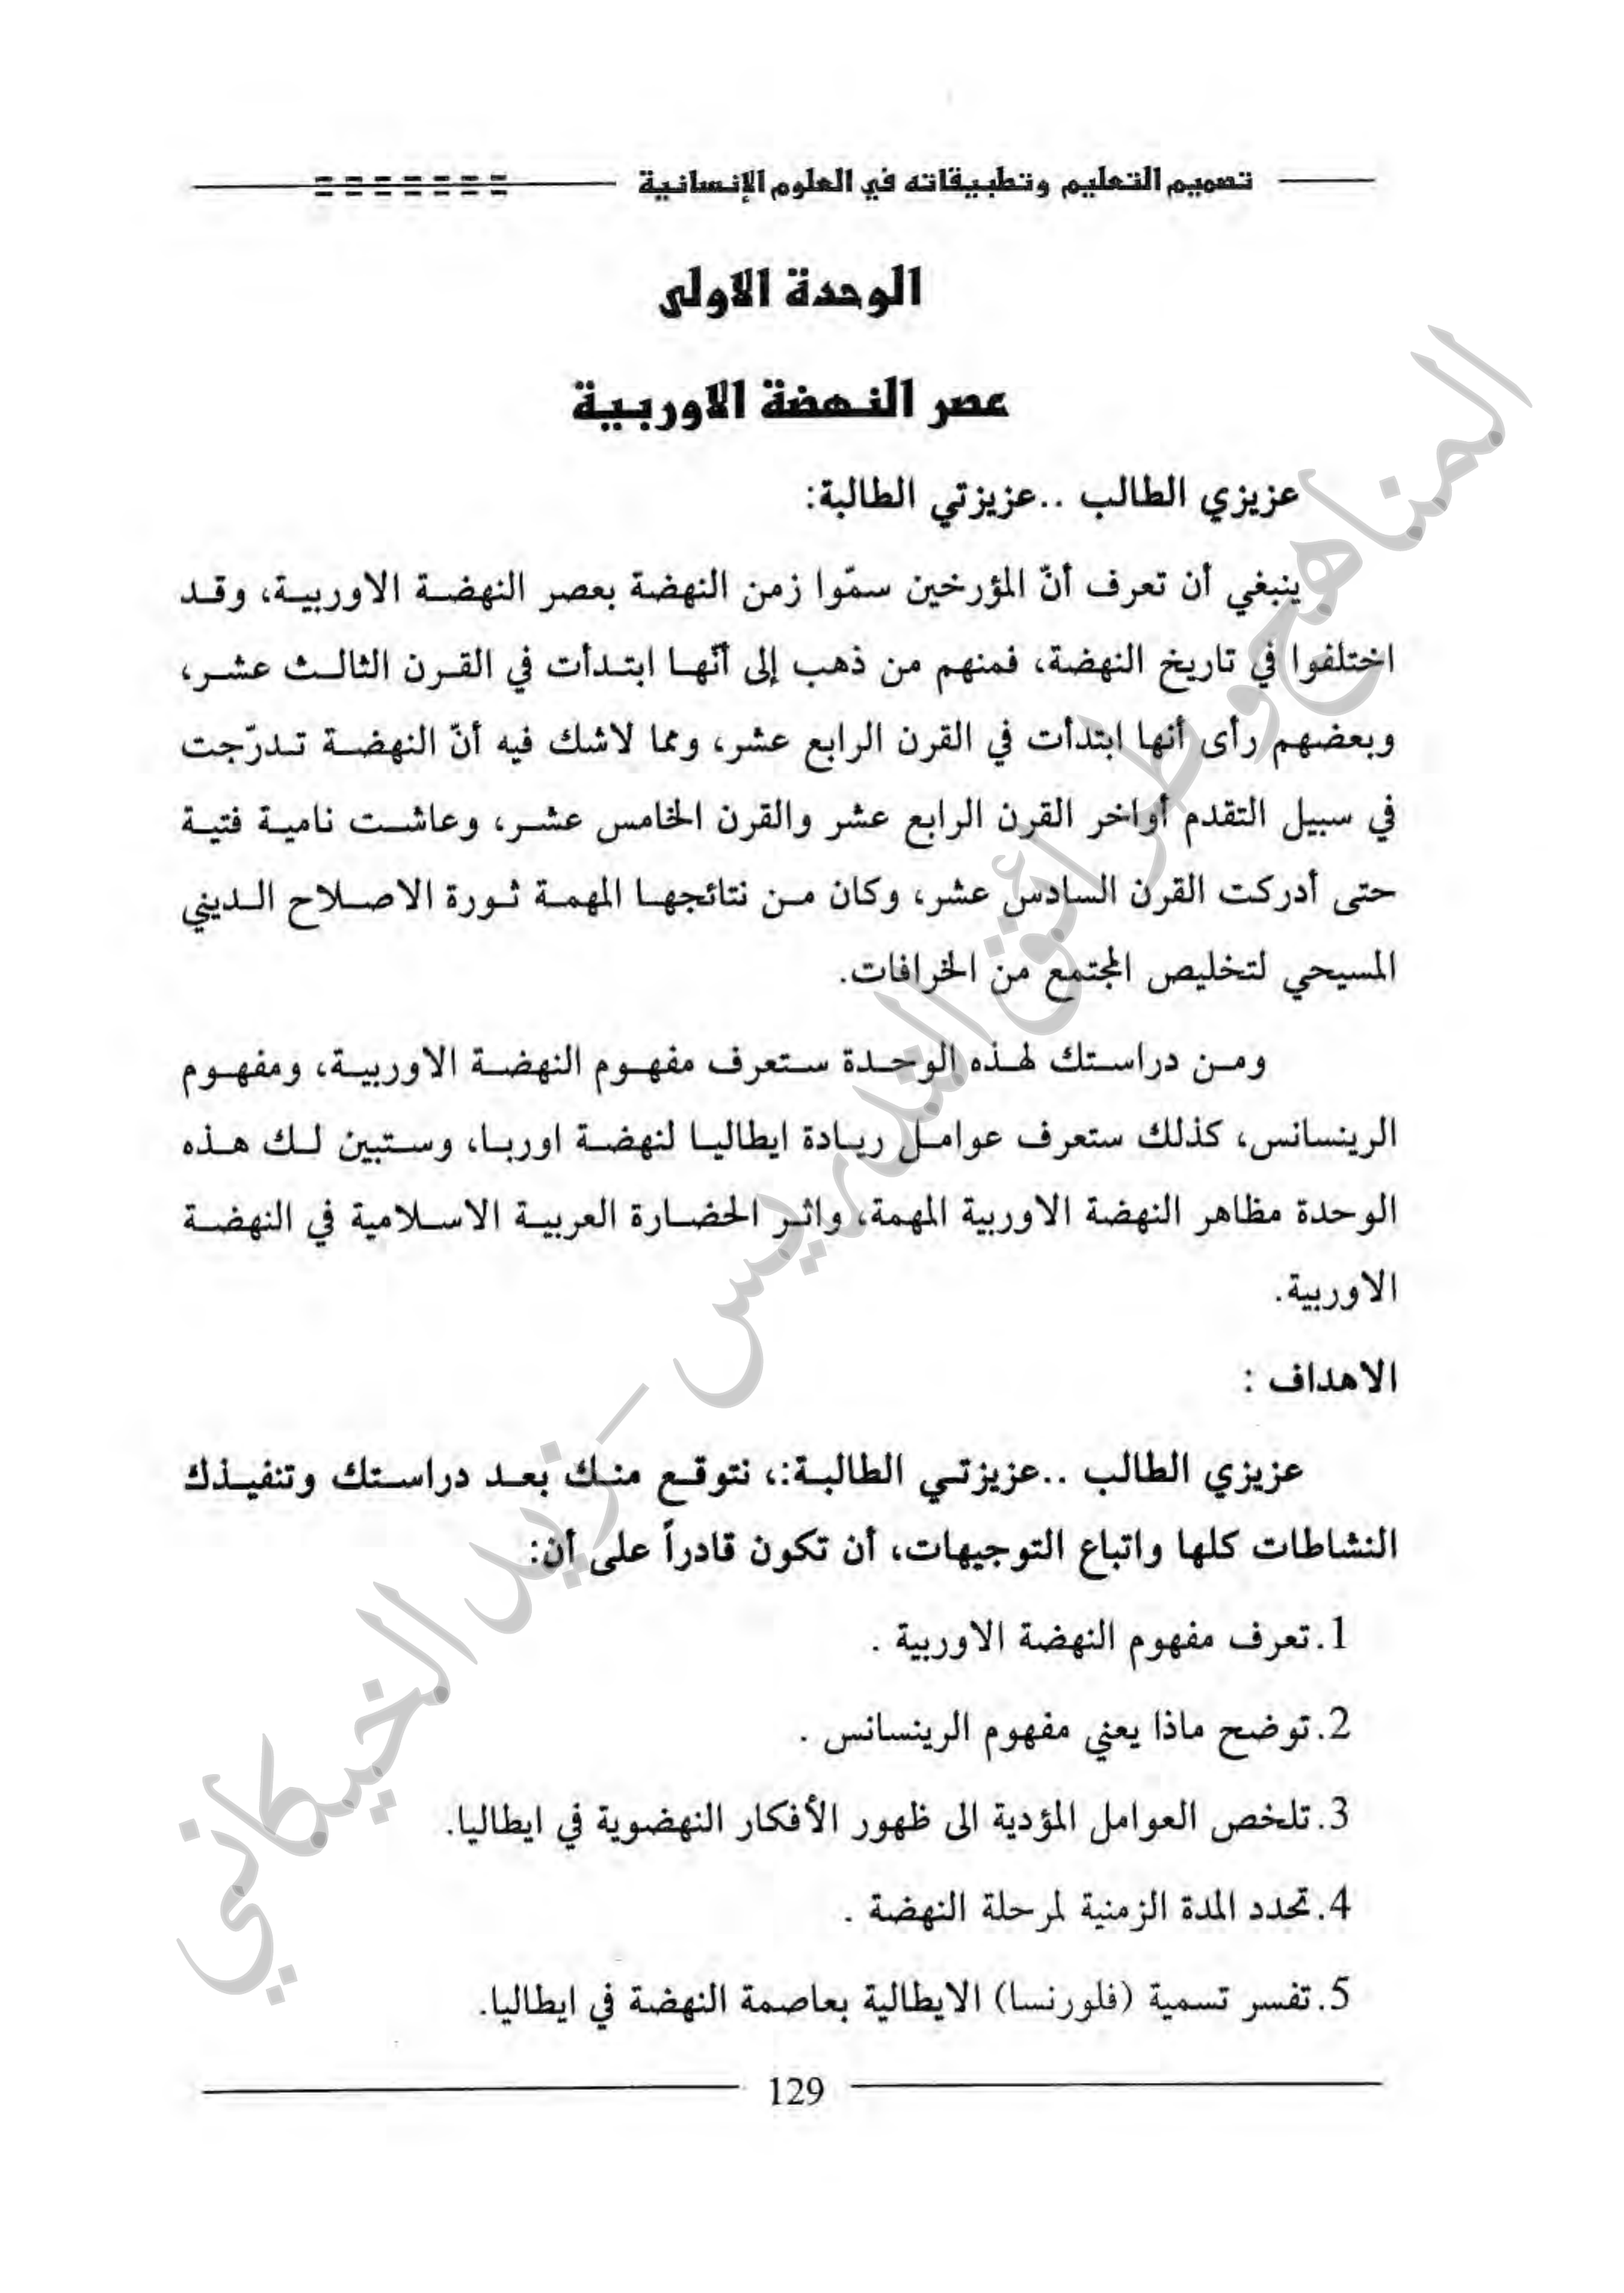 تصميم التعليم وتطبيقاته في العلوم الإنسانية
الوحدة الاولى
عصر النهضة الاوربية
عزيزي الطالب ..عزيزتي الطالبة:
ينبغي أن تعرف أنّ المؤرخين سمّوا زمن النهضة بعصر النهضة الاوربية، وقد
اختلفوا في تاريخ النهضة، فمنهم من ذهب إلى أنّها ابتدأت في القرن الثالث عشر،
وبعضهم رأى أنها ابتدأت في القرن الرابع عشر، ومما لاشك فيه أنّ النهضة تدرّجت
في سبيل التقدم أواخر القرن الرابع عشر والقرن الخامس عشر، وعاشت نامية فتية
حتى أدركت القرن السادس عشر، وكان من نتائجها المهمة ثورة الاصلاح الديني
المسيحي لتخليص المجتمع من الخرافات.
ومن دراستك لهذه الوحدة ستعرف مفهوم النهضة الاوربية، ومفهوم
الرينسانس، كذلك ستعرف عوامل ريادة ايطاليا لنهضة اوربا، وستبين لك هذه
الوحدة مظاهر النهضة الاوربية المهمة، واثر الحضارة العربية الاسلامية في النهضة
الاوربية.
الاهداف :
عزيزي الطالب ..عزيزتي الطالبة:، نتوقع منك بعد دراستك وتنفيذك
النشاطات كلها واتباع التوجيهات، أن تكون قادراً على أن:
1.تعرف مفهوم النهضة الاوربية .
2.توضح ماذا يعني مفهوم الرينسانس .
3.تلخص العوامل المؤدية الى ظهور الأفكار النهضوية في ايطاليا.
4.تحدد المدة الزمنية لمرحلة النهضة .
5.تفسر تسمية (فلورنسا) الايطالية بعاصمة النهضة في ايطاليا.
129
المناهج وطرائق التدريس - زيد الخيكاني